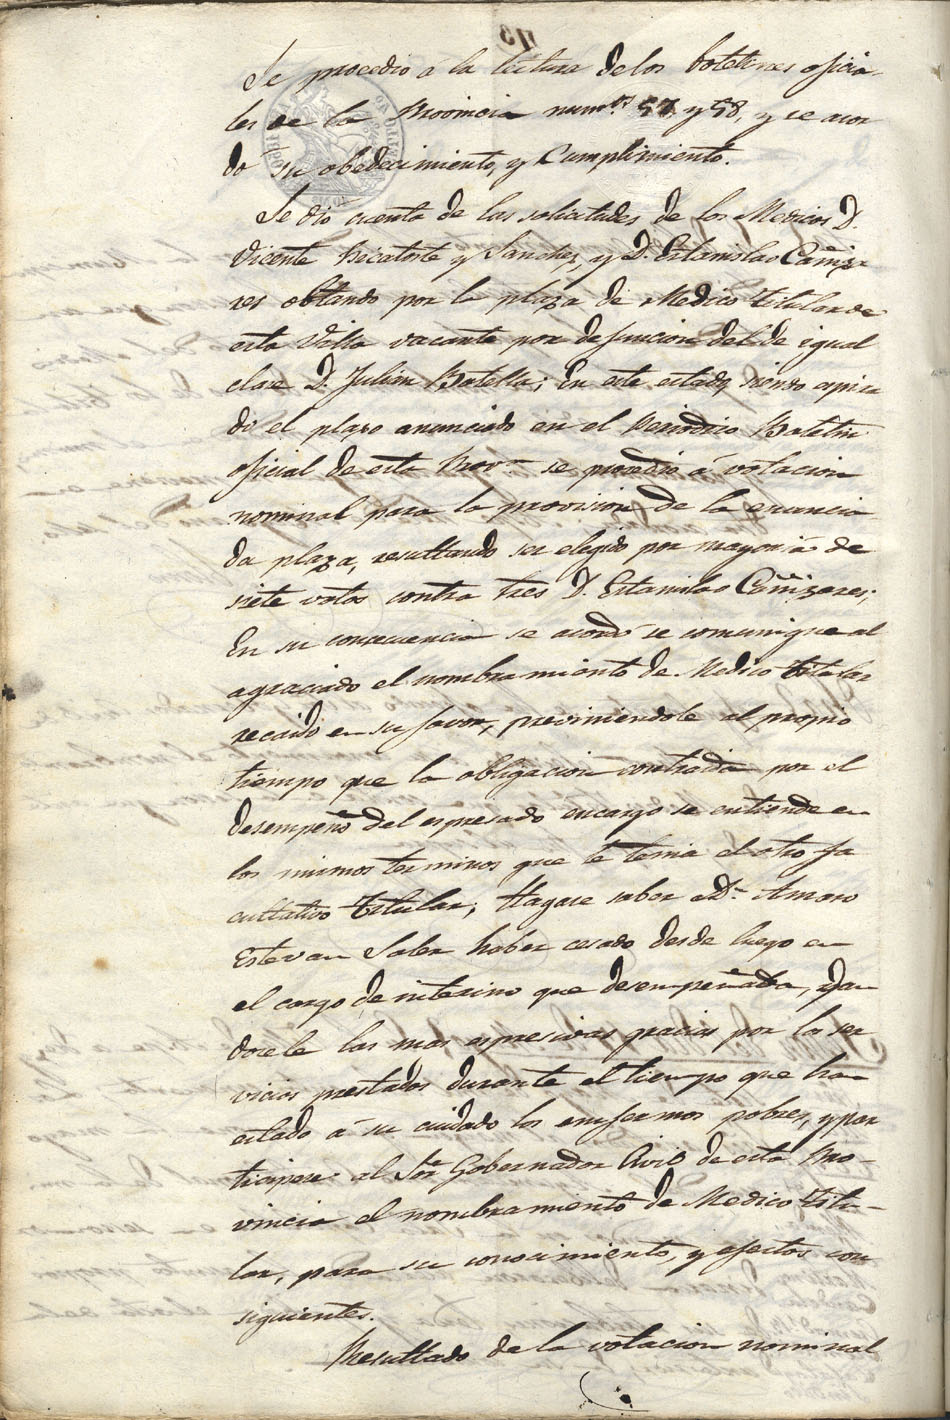 Se procedio á la lectura de los boletines oficia-
les de la Provincia num.os 57 y 58, y se acor
dó su obedecimiento, y Cumplimiento.
Se dio cuenta de las solicitudes de los Medicos D.
Vicente Bicatoste y Sanchez, y D. Estanislao Cañiza
res obtando por la plaza de Medico titular de
esta Villa vacante por defuncion del de igual
clase D. Julian Batella; En este estado, siendo espira
do el plazo anunciado en el Periodico Boletin
oficial de esta Prov.a se procedio á votacion
nominal para la provision de la enuncia
da plaza, resultando ser elegido por mayoria de
siete votos contra tres D. Estanislao Cañizares;
En su consecuencia se acordó se comunique al
agraciado el nombramiento de Medico titular
recaido en su favor, previniendole al propio
tiempo que la obligacion contraida por el
desempeño del espresado encargo se entiende en
los mismos terminos que le tenia el otro fa
cultativo titular; Hagase saber a D.n Amaro
Estevan Soler haber cesado desde luego en
el cargo de interino que desempeñada, dan
dosele las mas espresivas gracias por los ser
vicios prestados durante el tiempo que han
estado á su cuidado los enfermos pobres, y par
ticipese al Sor. Gobernador Civil de esta Pro-
vincia el nombramiento de Medico titu-
lar, para su conocimiento, y efectos con
siguientes.
Resultado de la votacion nominal